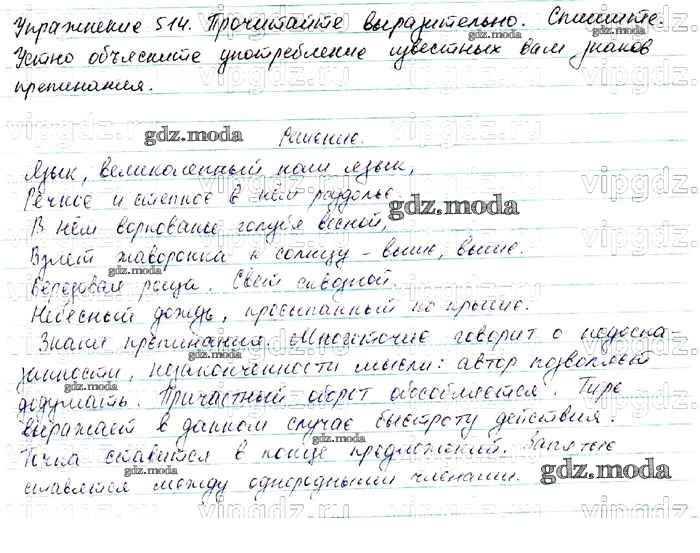 Упражнение 514. Прочитайте выразительно. Спишите.
Устно объясните употребление известных вам знаков
препинания.
gdz.moda
Решение.
Язык, великолепный наш язык,
Речное и степное в нём раздолье.
gdz.moda
В нём воркованье голубя весной,
Взлёт жаворонка к солнцу – выше, выше.
gdz.moda
Берёзовая роща. Свет сквозной.
Небесный дождь, просыпанный по крыше.
Знаки препинания. Многоточие говорит о недоска
gdz.moda
занности, незаконченности мысли: автор позволяет
gdz.moda
додумать. Причастный оборот обособляется. Тире
выражает в данном случае быстроту действия.
gdz.moda
Точка ставится в конце предложений. Запятые
gdz.moda
ставятся между однородными членами.
gdz.moda
vipgdz